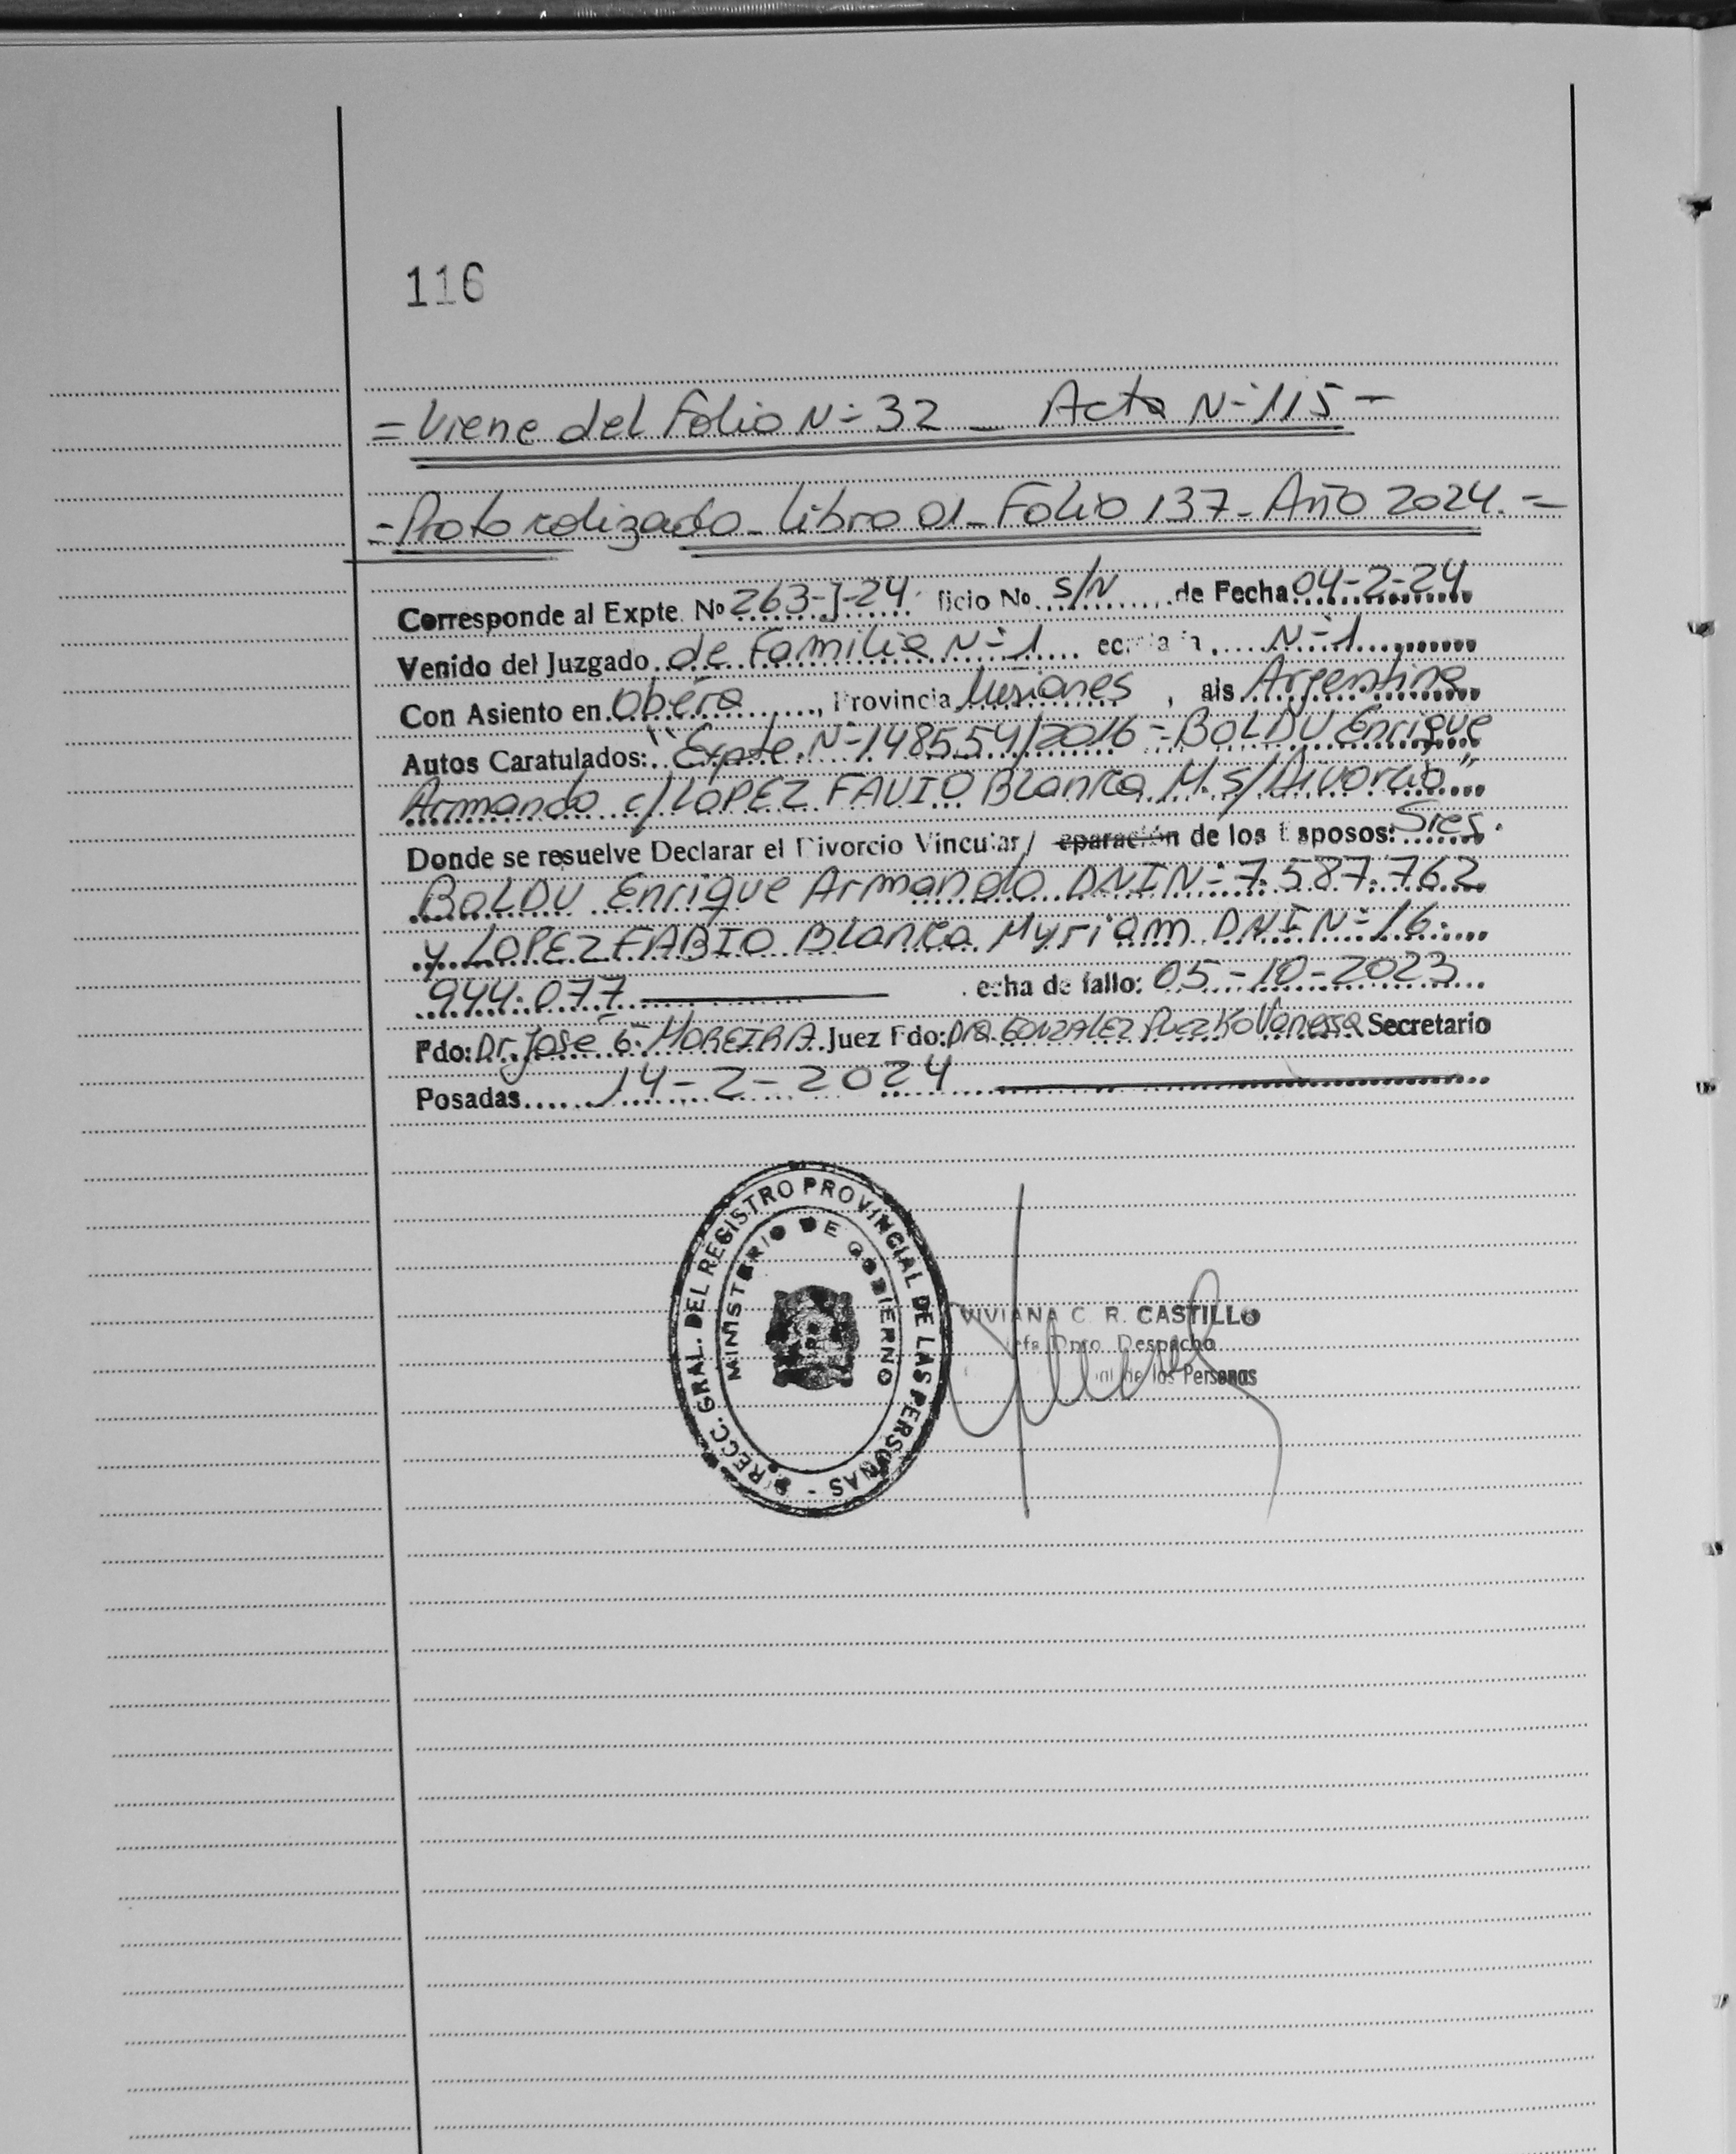 116
= Viene del Folio N= 32 _ Acta N= 115 -
= Protocolizado _ Libro 01 _ Folio 137 - Año 2024. =
Corresponde al Expte. Nº 263-J-24 ficio Nº S/N de Fecha 04-2-24
Venido del Juzgado de Familia N=1 N=1
Con Asiento en Oberá, Provincia Misiones, aís Argentina
Autos Caratulados: "Expte N=148554/2016 = BOLDU Enrique
Armando c/ LOPEZ FAVIO Blanca M. s/ Divorcio"
Donde se resuelve Declarar el Divorcio Vincular / eparación de los Esposos: Sres.
BOLDU Enrique Armando DNI N= 7.587.762
y LOPEZ FABIO Blanca Myriam DNI N= 16.
944.077 echa de fallo: 05-10-2023
Fdo: Dr. José G. MOREIRA Juez Fdo: Dra GONZALEZ Vanessa Secretario
Posadas 14-2-2024
DIRECC. GRAL. DEL REGISTRO PROVINCIAL DE LAS PERSONAS -
MINISTERIO DE GOBIERNO
VIVIANA C. R. CASTILLO
efa Dpto. Despacho
de las Personas